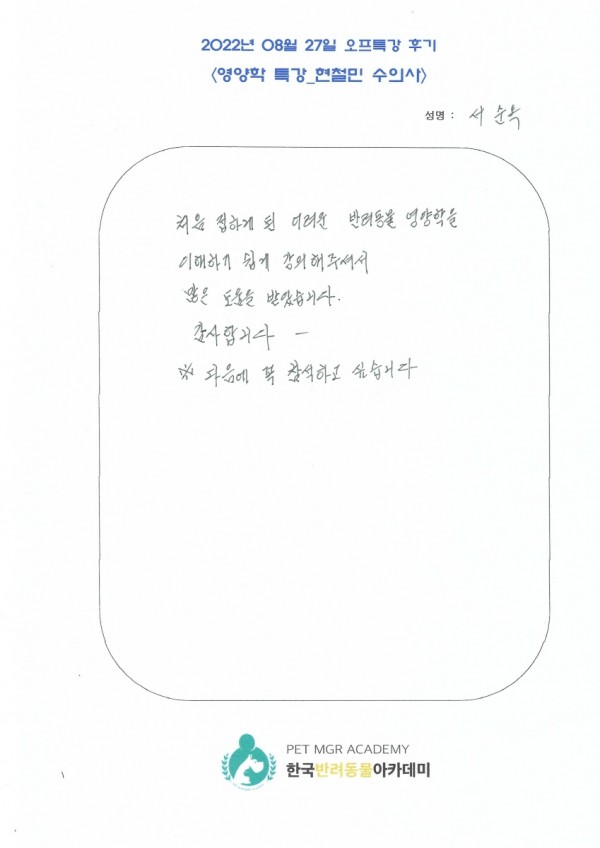 2022년 08월 27일 오프특강 후기
<영양학 특강_현철민 수의사>
성명 : 서순옥
처음 접하게 된 어려운 반려동물 영양학을
이해하기 쉽게 강의해주셔서
많은 도움을 받았습니다.
감사합니다 ㅡ
※ 다음에 꼭 참석하고 싶습니다
PET MGR ACADEMY
한국반려동물아카데미